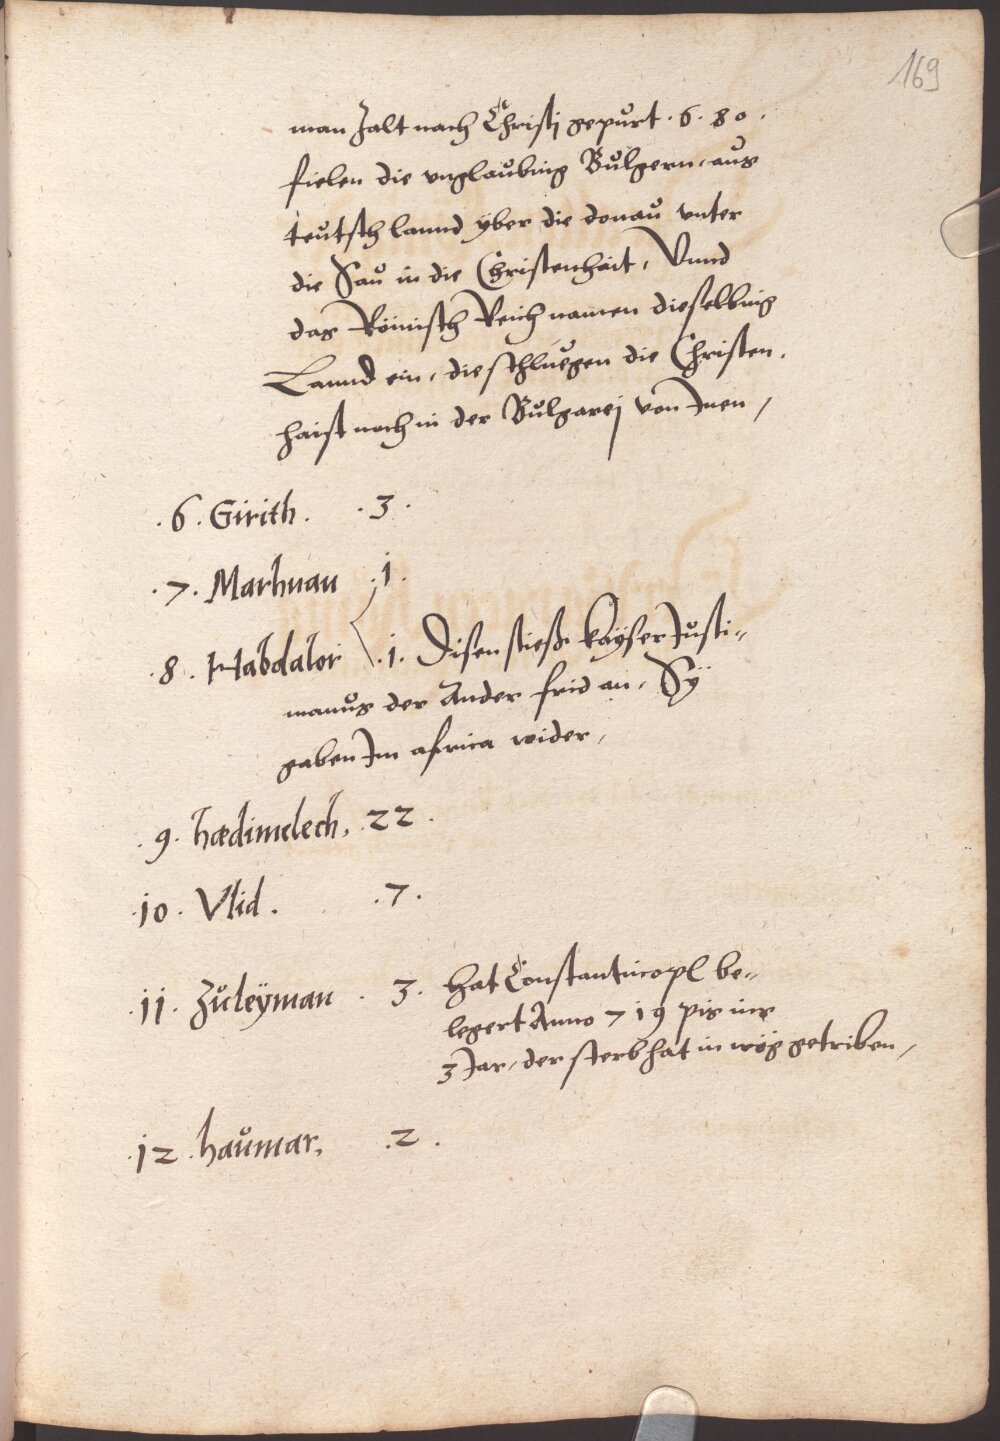 169
man Zalt nach Christj gepurt . 6 . 80 .
fielen die vnglaubing Bulgern, aus
teutsch lannd yber die donau vnter
die Sau in die Christenhait, Vnnd
das Römisch Reich namen dieselbing
Lannd ein, die schluegen die Christen,
haist noch in der Bulgarej von Inen,
. 6 . Girith . . 3 .
. 7 . Marhuan . 1 .
. 8 . Habdalor . 1 . Disen stiess kayser Justi=
nianus der Ander frid an, Sÿ
gaben Im africa wider,
. 9 . hædimelech, 22 .
. 10 . Vlid . . 7 .
. 11 . Zuleÿman . 3 . hat Constantinopl be=
legert Anno 719 pis ins
3 Jar, der sterb hat in wög getriben,
. 12 . haumar, . 2 .